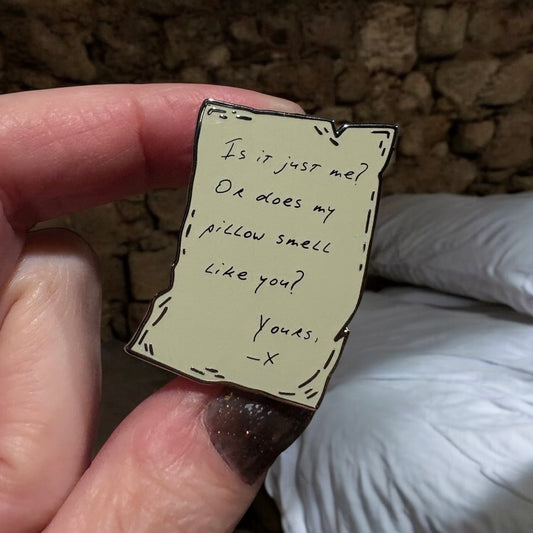 Is it just me?
Or does my
pillow smell
like you?
Yours,
–X